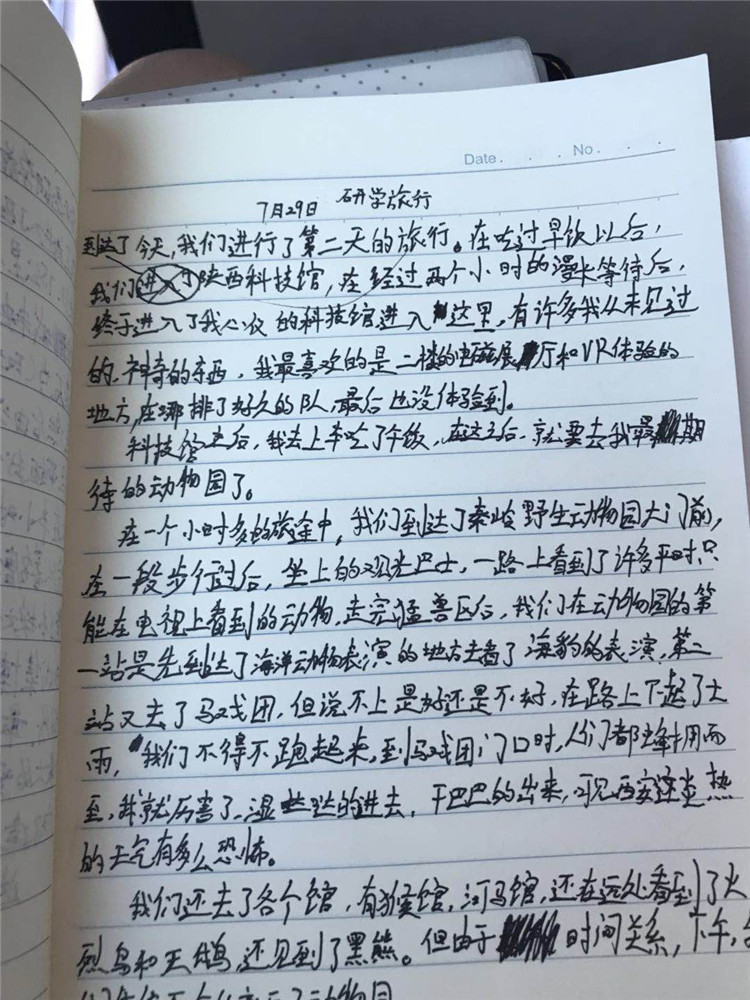 Date. No.
7月29日 研学旅行
到达了 今天,我们进行了第二天的旅行。在吃过早饭以后,
我们陕西科技馆,在经过两个小时的漫长等待后,
终于进入了我心仪的科技馆进入这里,有许多我从未见过
的.神奇的东西,我最喜欢的是二楼的电磁展厅和VR体验的
地方,在哪排了好久的队,最后也没体验到。
科技馆之后,我去上车吃了午饭,在这之后,就要去我最期
待的动物园了。
在一个小时多的旅途中,我们到达了秦岭野生动物园大门前,
在一段步行过后,坐上的观光巴士,一路上看到了许多平时只
能在电视上看到的动物,走完猛兽区后,我们在动物园的第
一站是先到达了海洋动物表演的地方去看了海豹的表演,第二
站又去了马戏团,但说不上是好还是不好,在路上下起了大
雨,我们不得不跑起来,到马戏团门口时,人们都蜂拥而
至,我就厉害了,湿哒哒的进去,干巴巴的出来,可见西安这炎热
的天气有多么恐怖。
我们还去了各个馆,有猴馆,河马馆,还在远处看到了火
烈鸟和天鹅,还见到了黑熊。但由于时间关系,下午,
了动物园